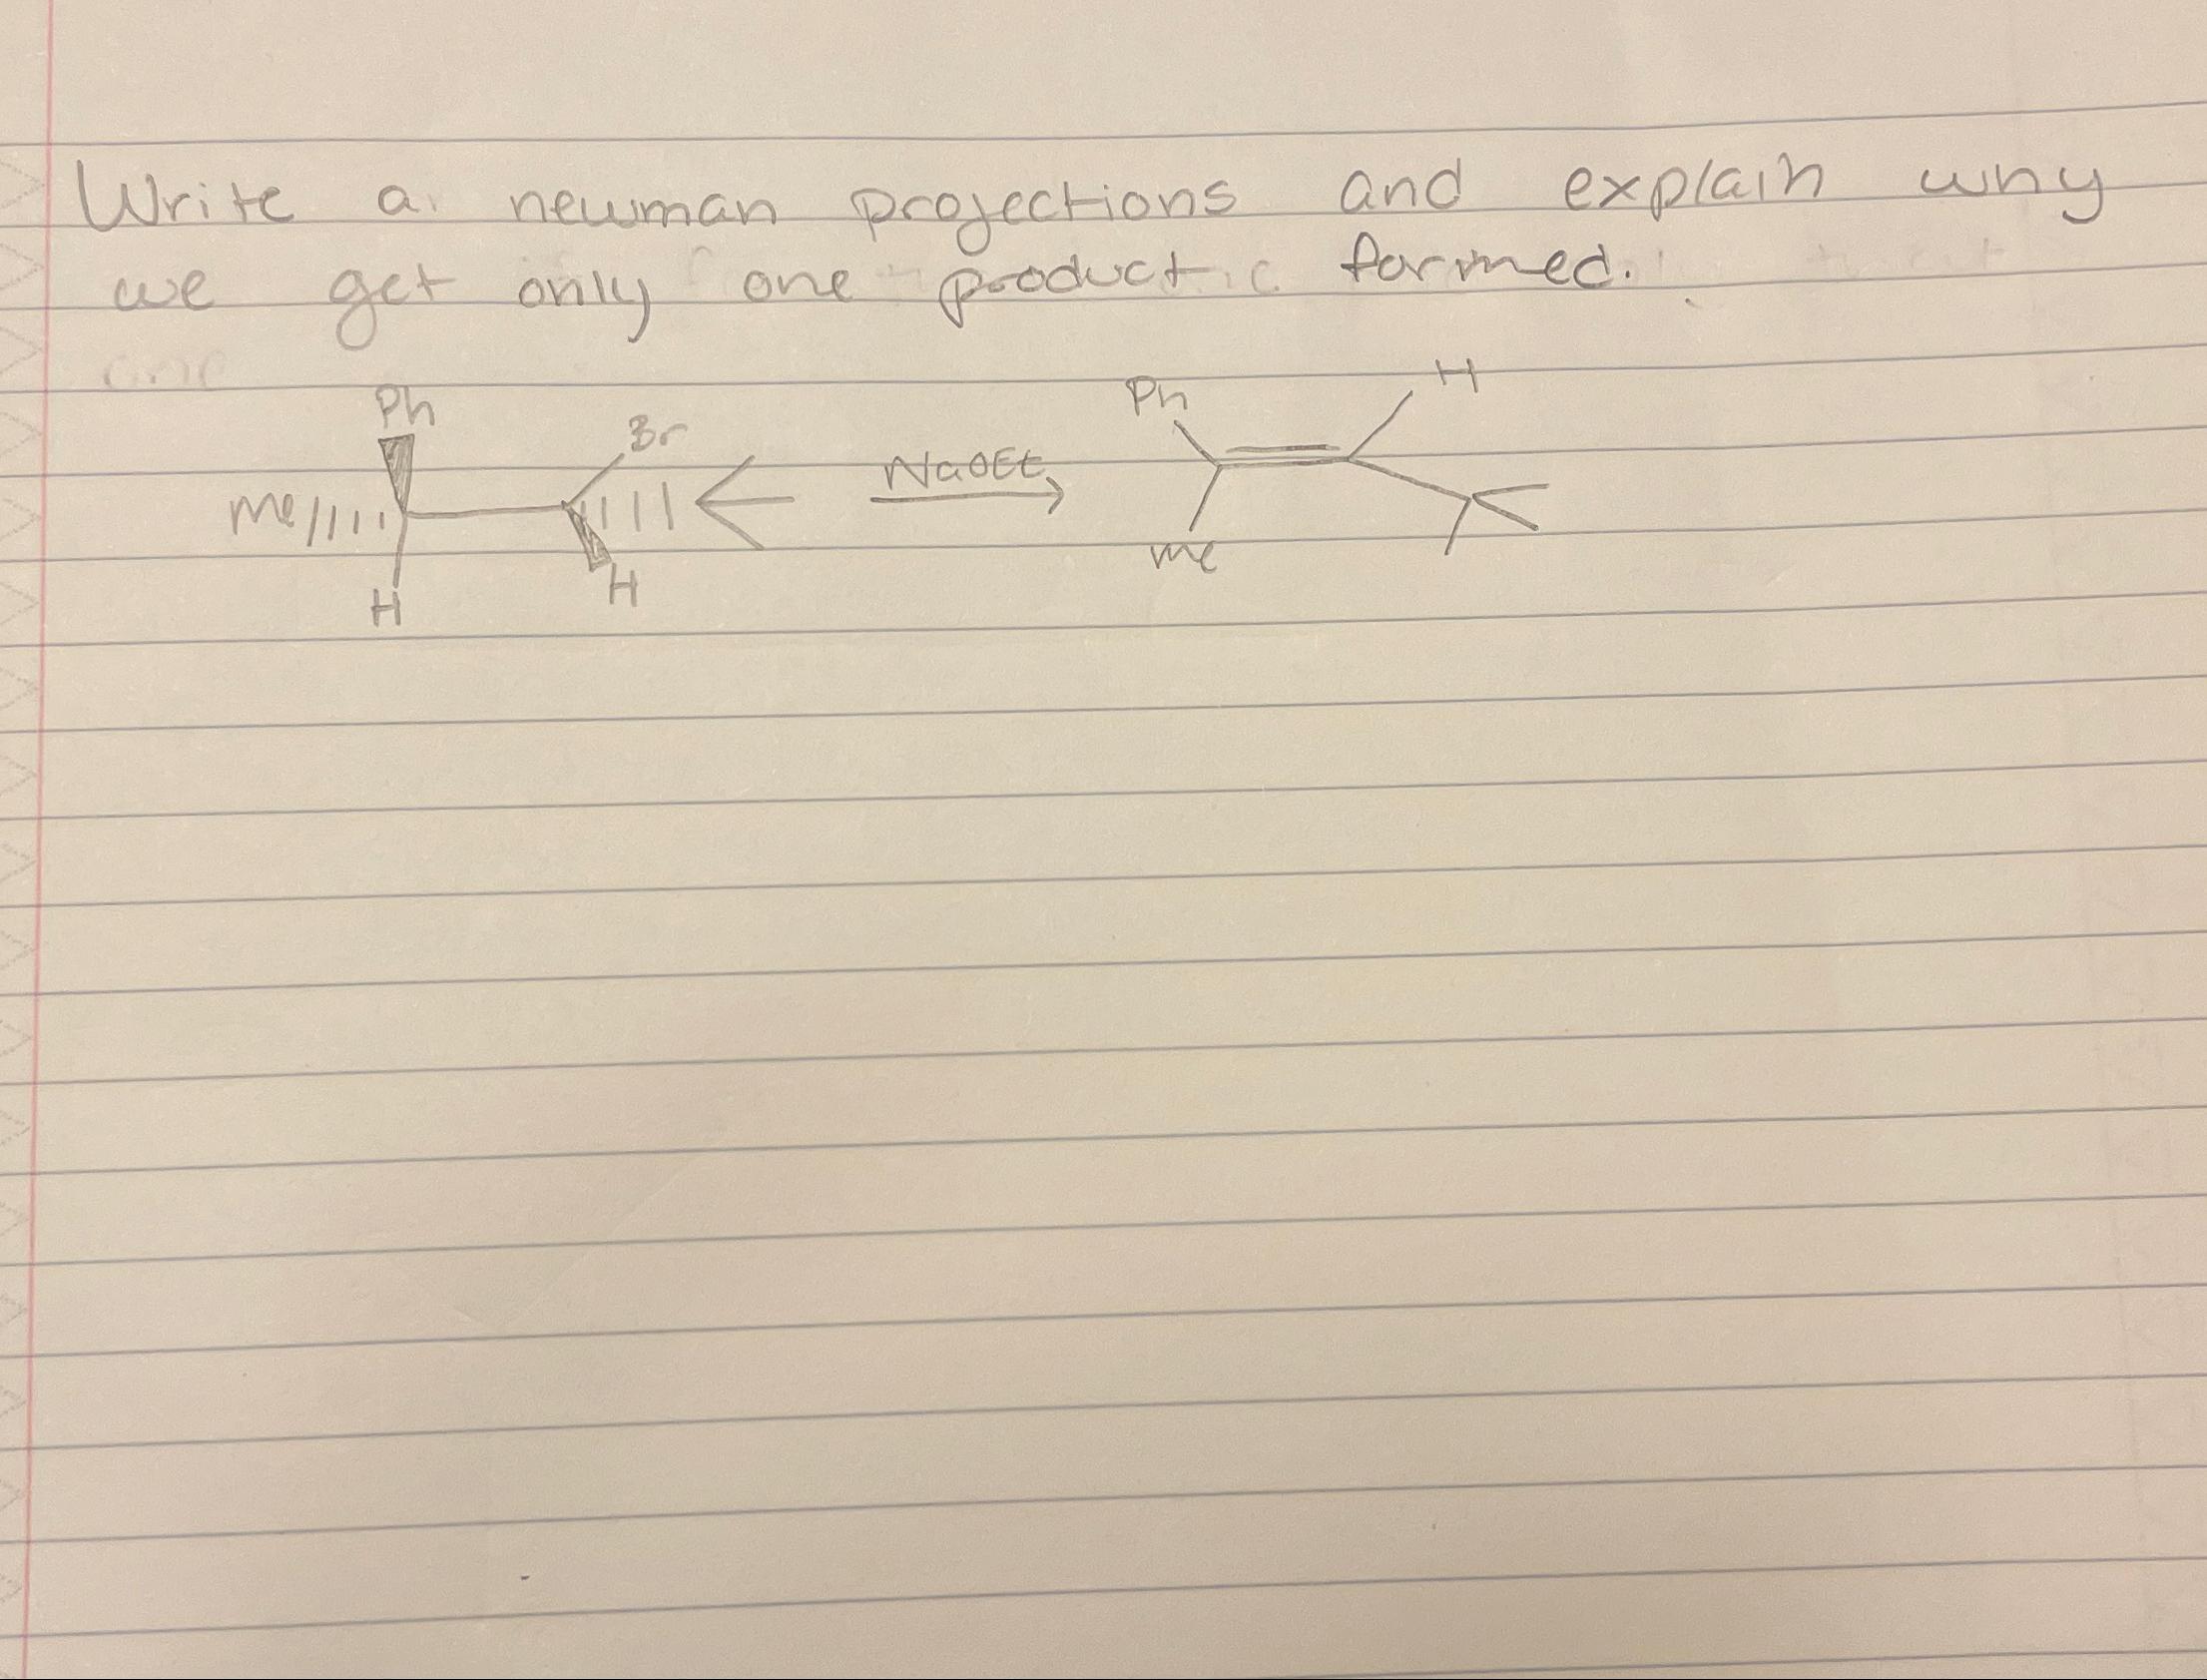 Write a newman projections and explain why
we get only one product formed.
Ph
Br
Me
H
H
NaOEt
Ph
H
me